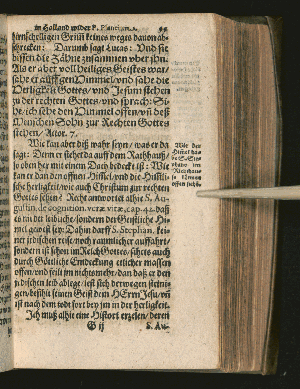 in Holland wider P. Plancium.
hirnschelligen Grim keines weges davon ab-
schrecken: Darumb sagt Lucas: Und sie
bissen die Zähne zusammen uber ihn.
Als er aber voll heiliges Geistes war/
sahe er auff gen Himmel/ und sahe die
Herligkeit Gottes/ und Jesum stehen
zu der rechten Gottes/ und sprach: Si-
he/ ich sehe den Himmel offen/ uñ deß
Menschen Sohn zur Rechten Gottes
stehen/ Actor. 7.
Wie kan aber diß wahr seyn/ was er da
sagt: Denn er stehet da auff dem Rathhauß/
so oben her mit einem Dach bedeckt ist: Wie
kan er dan den offnen Himel/ und die Himli-
sche herligkeit/ wie auch Christum zur rechten
Gottes sehen? Recht antwortet alhie S. Au-
gustin. de cognition. veræ vitæ, cap. 42. daß
es nit der leibliche/ sondern der Geistliche Hi-
mel gewest sey: Dahin darff S. Stephan. kei-
ner jrdischen reise/ noch raumlicher auffahrt/
sondern ist schon im Reich Gottes/ sihets auch
durch Göttliche Entdeckung etlicher massen
offen/ und feilt jm nichts mehr/ dan daß er den
jrdischen leib ablege/
befihlt seinen Geist dem HErrn Jesu/ uñ
ist nach dem todt fort bey jm in der herligkeit.
Ich muß alhie eine Histori erzelen/ deren
G ij
S. Au-
Wie der
Himel das
S. Ste-
phano im
Rathhaus
offen